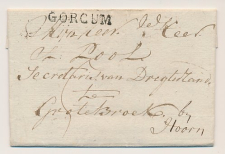 GORCUM
Heer
Pool
Secretaris van Dregterland
te
Grotebroek by
Hoorn